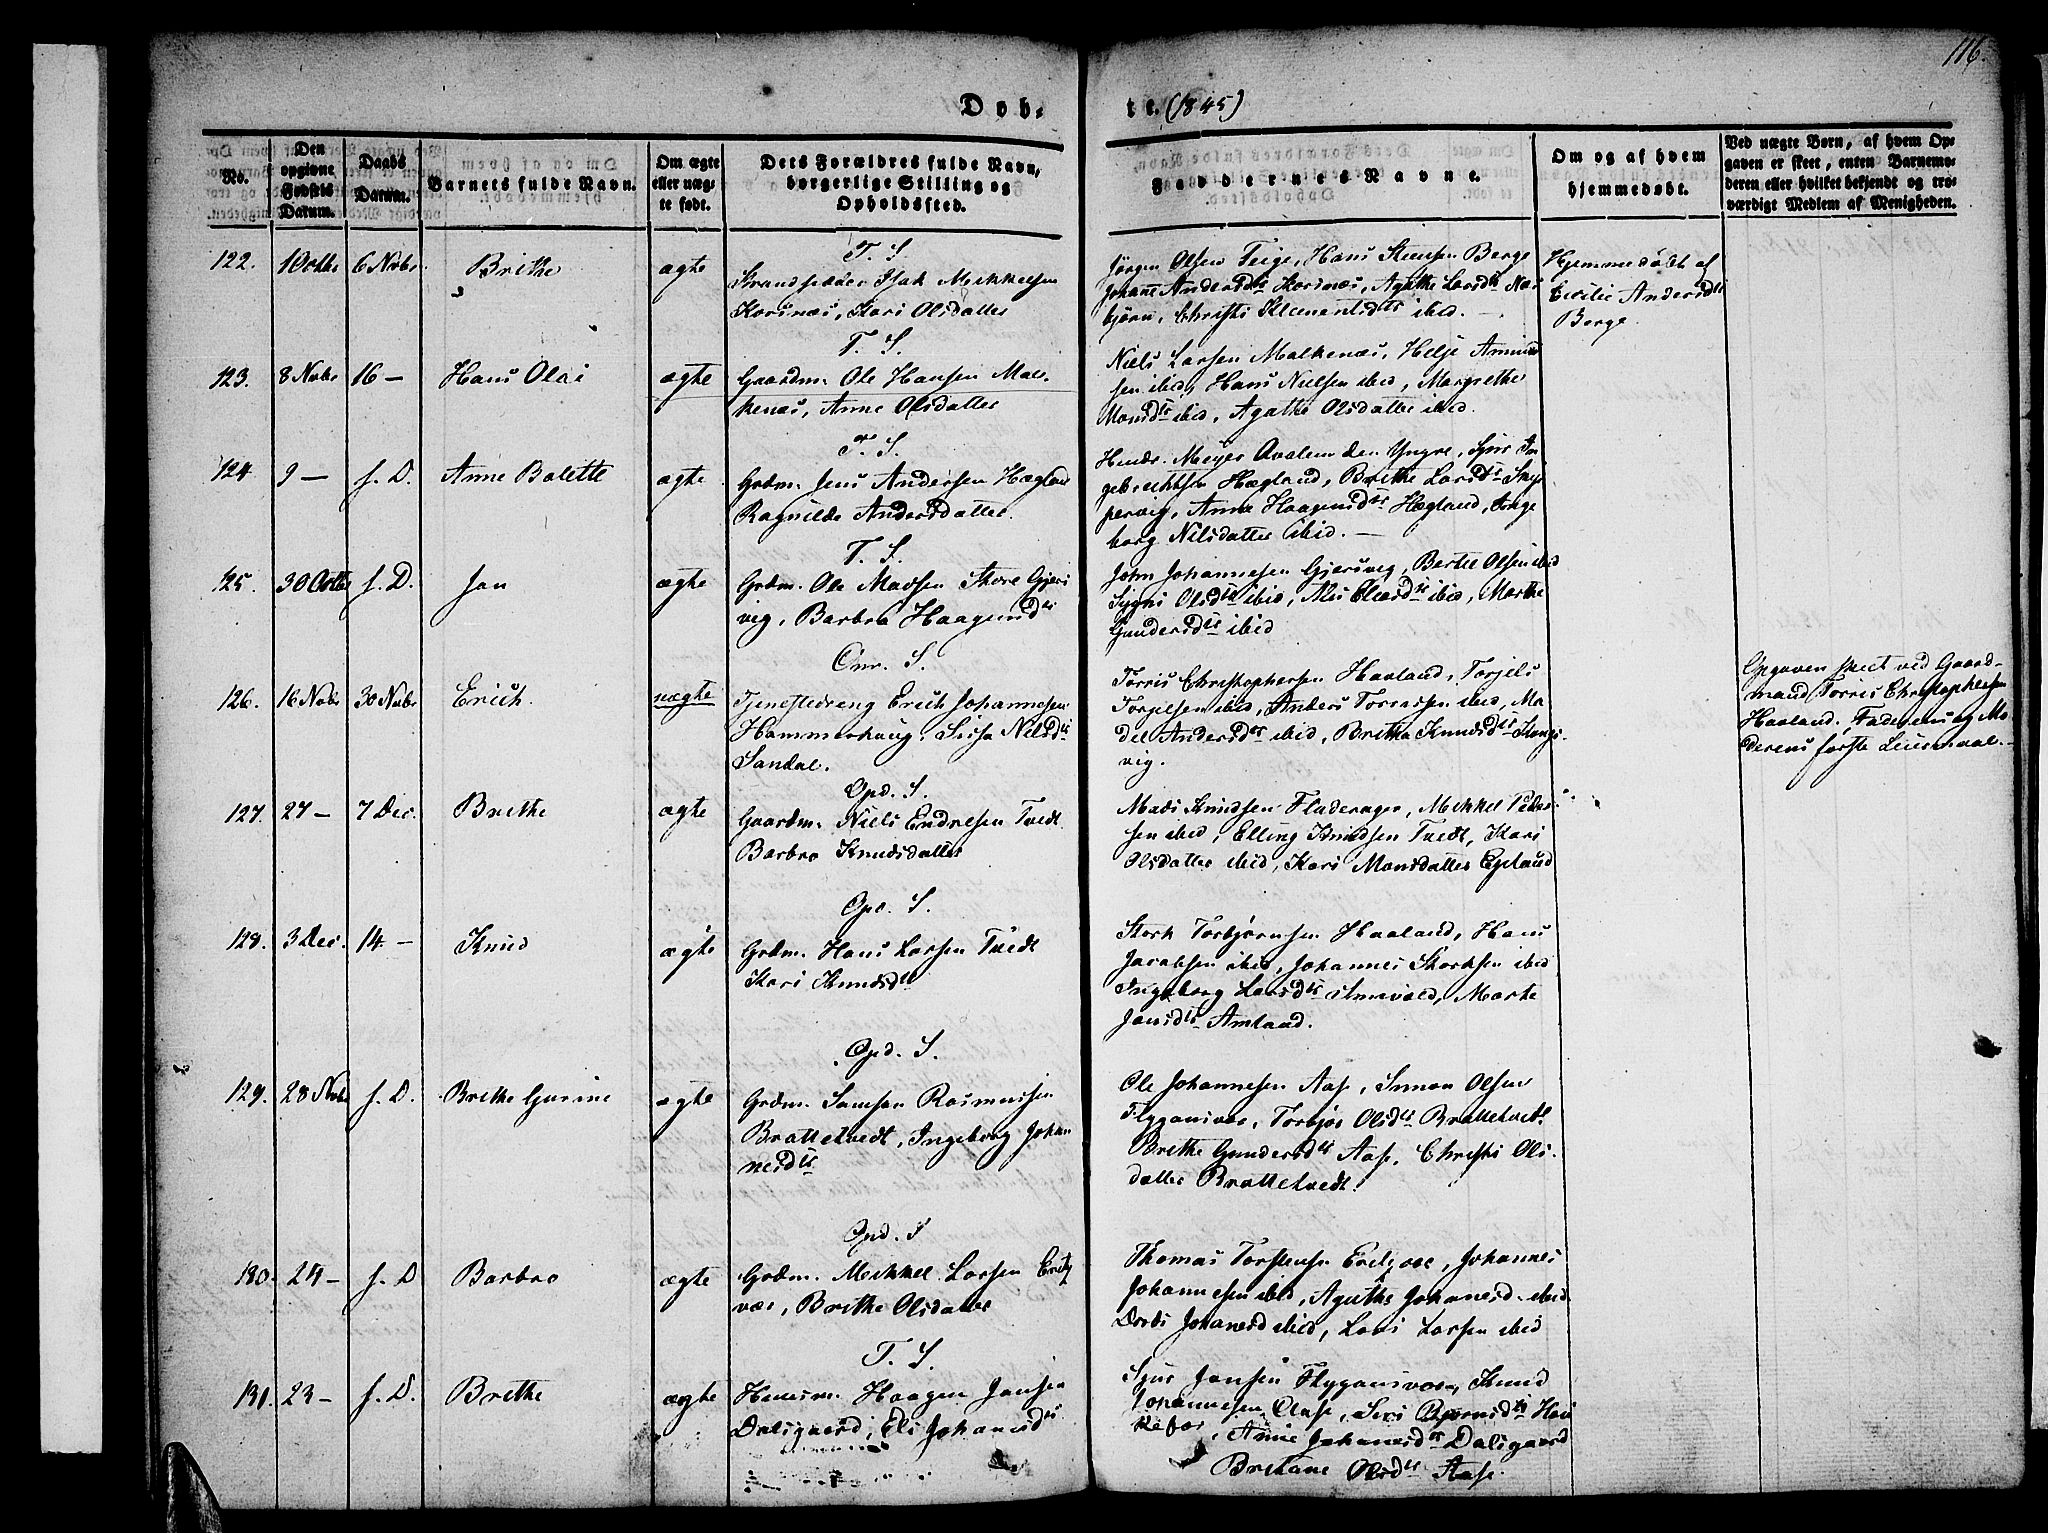 116.
Døb-
te. (1845)
No.
Den
opgivne
Fødsels
Datum.
Daabs
Datum.
Barnets fulde Navn.
Om ægte
eller næg-
te født.
Dets Forældres fulde Navn,
borgerlige Stilling og
Opholdssted.
Faddernes Navne.
Om og af hvem
hjemmedøbt.
Ved nægte Børn, af hvem Op-
gaven er skeet, enten Barnemo-
deren eller hvilket bekjendt og tro-
værdigt Medlem af Menigheden.
122.
1 Octbr
6 Novbr
Brithe
ægte
T. S.
Strandsidder Isak Mikkelsen
Korsnæs, Kari Olsdatter
Jørgen Olsen Teige, Hans Steensen Berge
Johann Andersdtr Korsnæs, Agathe Larsdtr
bjørn, Christi Klementsdtr ibid. —
Hjemmedøbt af
Cecilie Andersdtr
Berge.
123.
8 Novbr
16 —
Hans Olai
ægte
T. S.
Gaardm. Ole Hansen Mal-
kenæs, Anne Olsdatter
Niels Larsen Malkenæs, Helje Amund
sen ibid, Hans Nielsen ibid, Margrethe
Monsdtr ibid, Agathe Olsdatter ibid.
124.
9 —
s. D.
Anne Bolette
ægte
T. S.
Grdm. Jens Andersen Hægland
Ragnilde Andersdatter.
Hendr. Meyer Avalem den Yngre, Sjur In
gebrechtsen Hægland, Brithe Larsdtr Skip
pervig, Anne Haagensdtr Hægland, Inge
borg Nilsdatter ibid. —
125.
30 Octbr
s. D.
Jon
ægte
T. S.
Grdm. Ole Madsen Store Gjers
vig, Barbro Haagensdtr
John Johannesen Gjersvig, Bertel Olsen ibid
Sygni Olsdtr ibid, ibid, Marthe
Gundersdtr ibid
126.
16 Novbr
30 Novbr
Erich.
nægte
Onr. S.
Tjenestedreng Erich Johannesen
Hammerhaug, Sissa Nilsdtr
Sandal.
Torris Christophersen Haaland, Torjels
Torgilsen ibid, Anders Torrissen ibid, Ma
del Andersdtr ibid, Britha Knudsdtr Kongs
vig.
Opgaven skeet ved Gaard-
mand Torris Christophersen
Haaland. Faderens og Mo
derens første Leiermaal. —
127.
27 —
7 Dec.
Brithe
ægte
Opd. S.
Gaardm. Niels Endresen Tvedt
Barbro Knudsdatter
Mads Knudsen Fladerager, Mikkel Peder-
sen ibid, Elling Knudsen Tvedt, Kari
Olsdatter ibid, Kari Monsdatter Epland
128.
3 Dec.
14 —
Knud
ægte
Opd. S.
Grdm. Hans Larsen Tvedt
Kari Knudsdtr
Stork Torbjørnsen Haaland, Hans
Jacobsen ibid, Johannes Storksen ibid
Ingeborg Larsdtr Unnevold, Marte
Jonsdtr Amland.
129.
28 Novbr
s. D.
Brithe Gurine
ægte
Opd. S.
Grdm. Samson Rasmussen
Brattetvedt, Ingeborg Johan
nesdtr
Ole Johannesen Aase, Simon Olsen
Flygansvær, Torbjør Olsdtr Brattetvedt
Brithe Gundersdtr Aase, Christi Ols-
datter Brattetvedt.
130.
24 —
s. D
Barbro
ægte
Opd. S
Grdm. Mikkel Larsen Eritz
vær, Brithe Olsdatter
Thomas Torstensen Eritzvær, Johannes
Johannesen ibid, Agathe Johanesd. ibid
Dorthi Johanesd ibid, Lars Larsen ibid
131.
23 —
s. D.
Brithe
ægte
T. S.
Huusm. Haagen Jansen
Dalsgaard, Eli Johanesdtr
Sjur Jansen Flygansvær, Knud
Johannesen Aase, Siri Bjørnsdtr
Anne Johanesdtr Dalsgaard
Britane Olsdtr Aase.